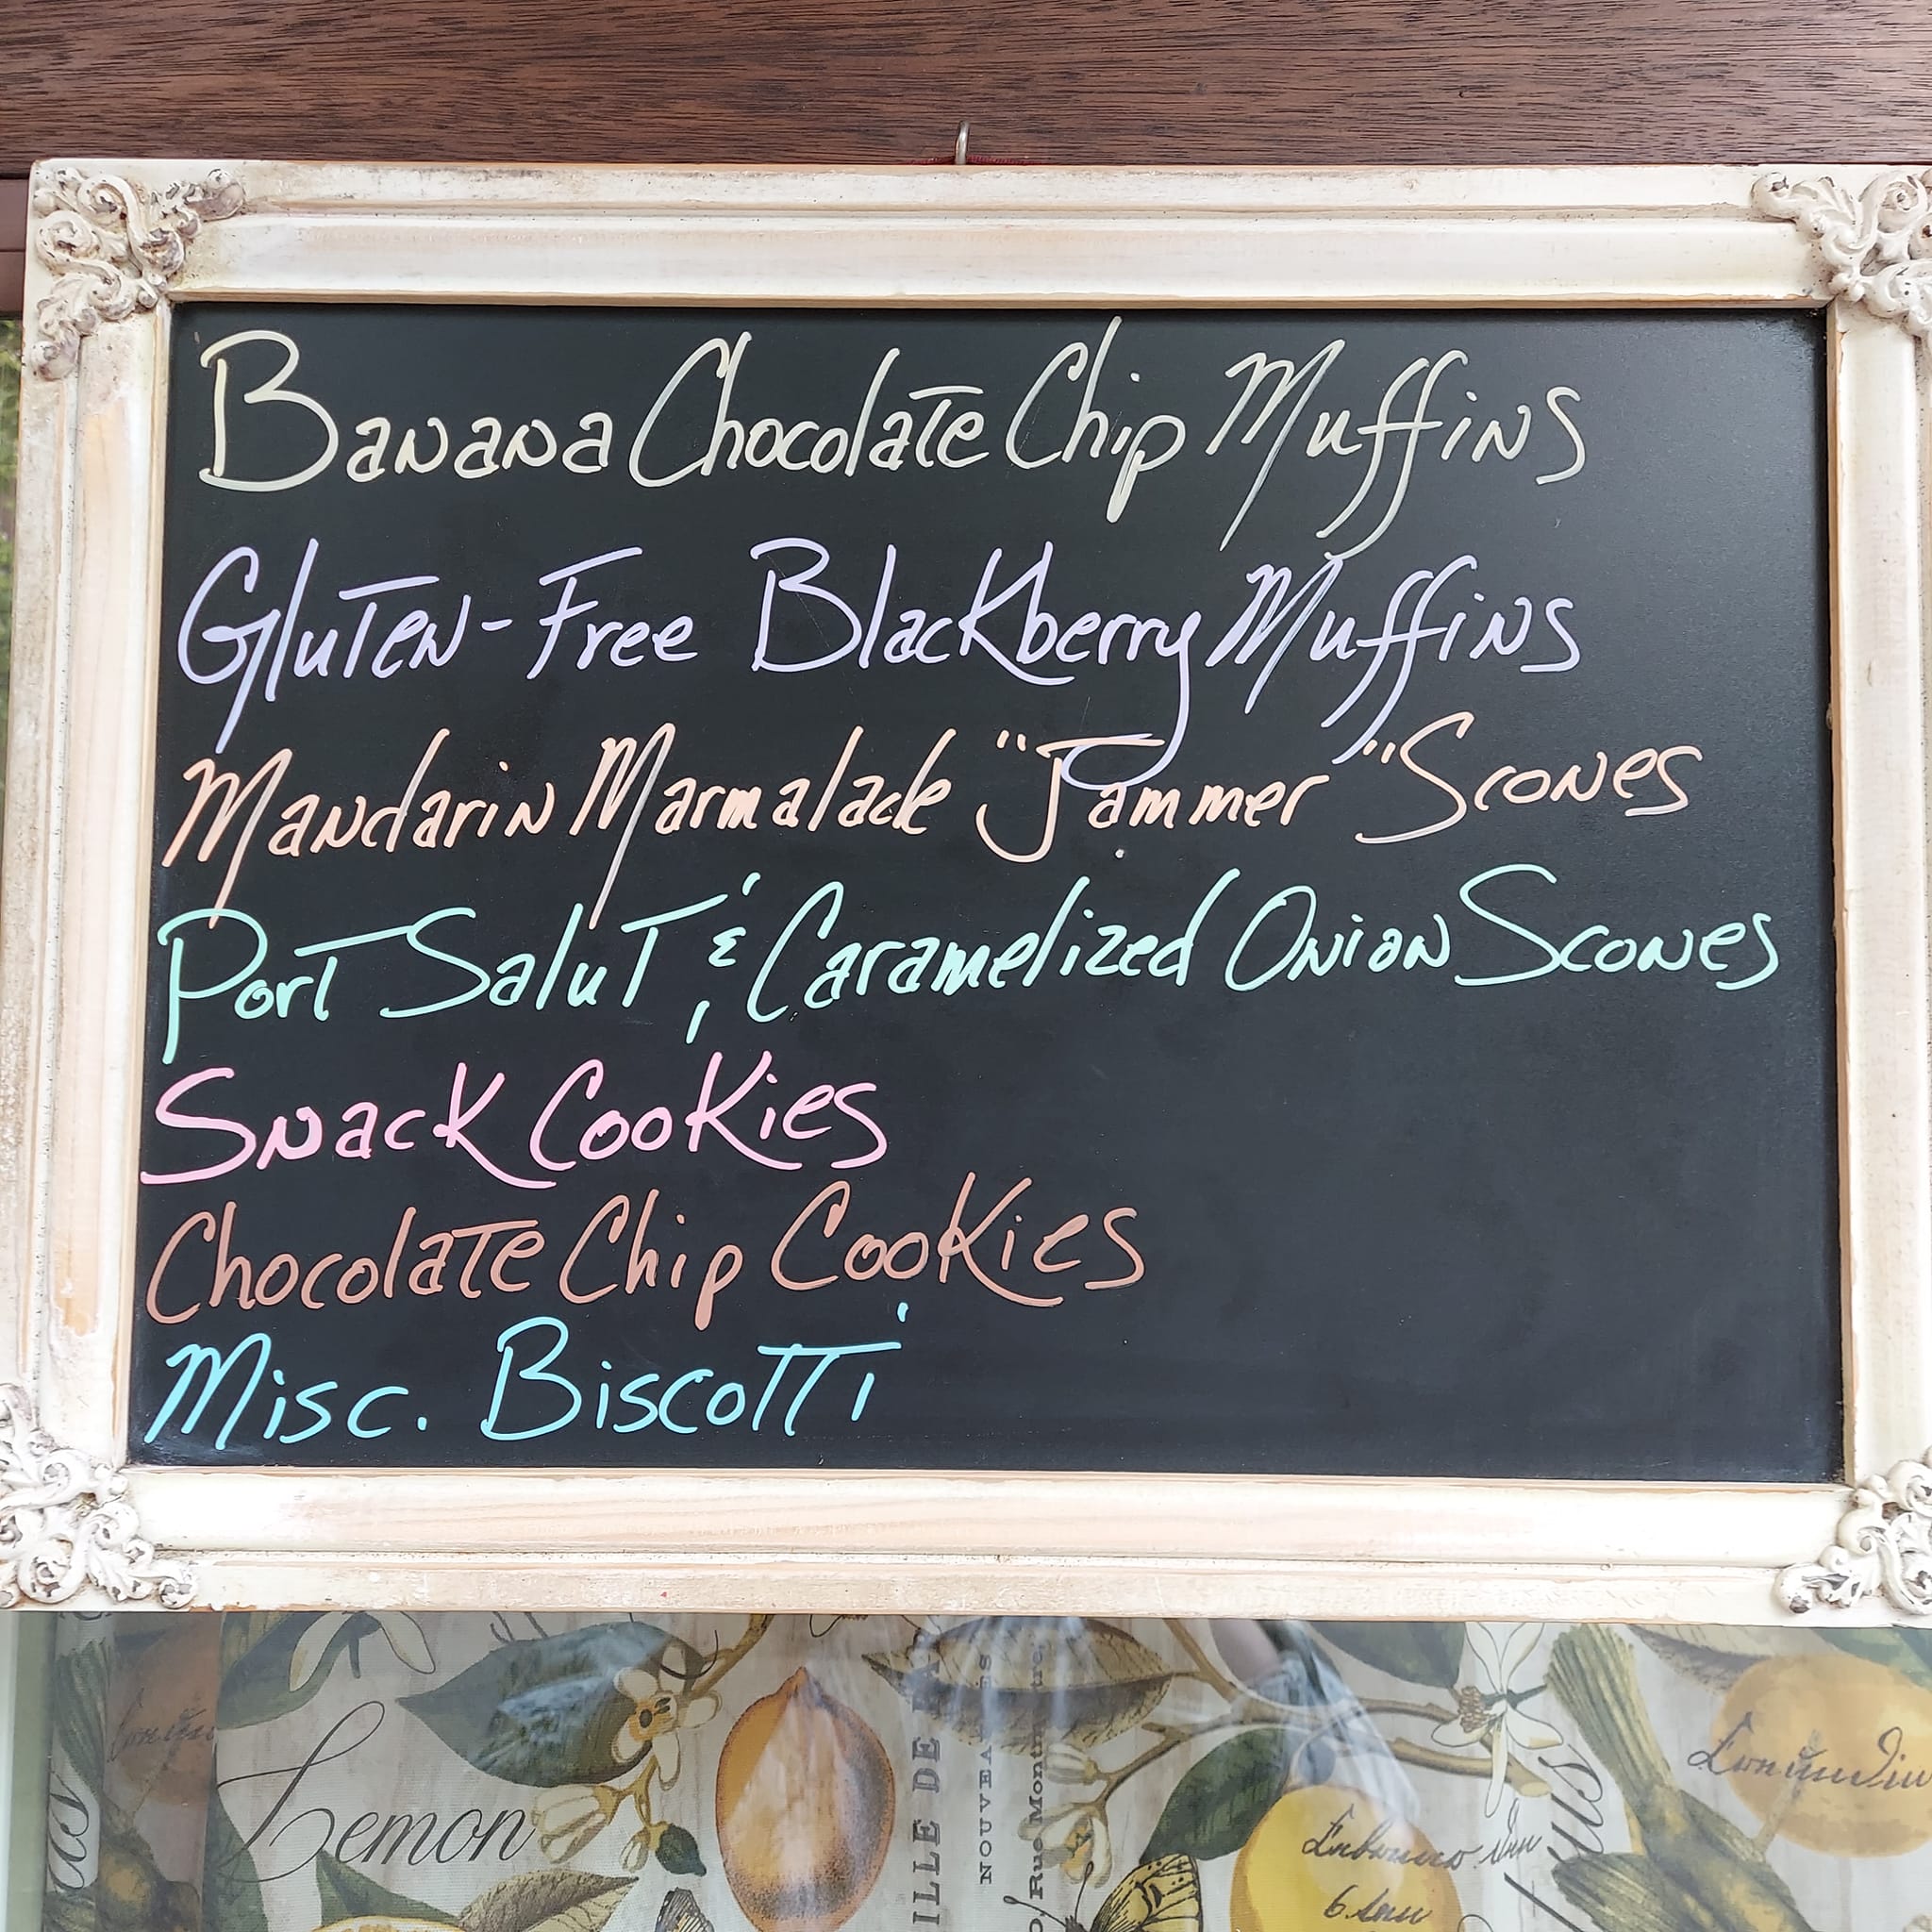 Banana Chocolate Chip Muffins
Gluten-Free Blackberry Muffins
Mandarin Marmalade "Jammer" Scones
Port Salut & Caramelized Onion Scones
Snack Cookies
Chocolate Chip Cookies
Misc. Biscotti
Lemon
ILLE DE PA
NOUVEA
Rue Montm